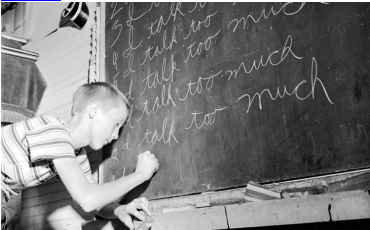 I talk too much
I talk too much
I talk too much
I talk too much
I talk too much
I